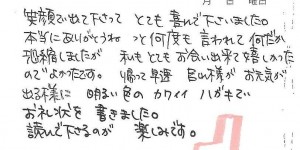 月 日 曜日
笑顔で出て下さって とても喜んで下さいました。
本当にありがとうね っと何度も言われて 何だか
恐縮しましたが 私もとてもお会い出来て嬉しかった
のでよかったです。 帰って早速 様が お元気が
出る様に 明るい色の カワイイ ハガキで
お礼状を 書きました。
読んで下さるのが 楽しみです。